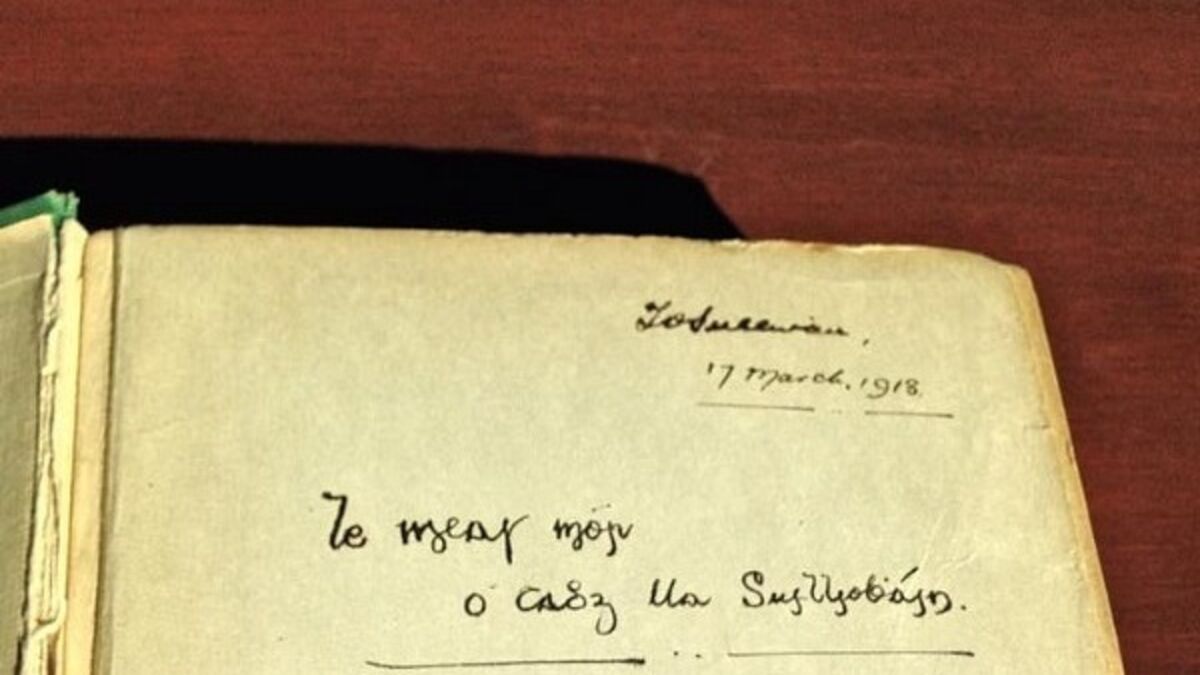 TOSullivan,
17 March. 1918.
Le meas mór
ó Tadg Ua Suilliobáin.